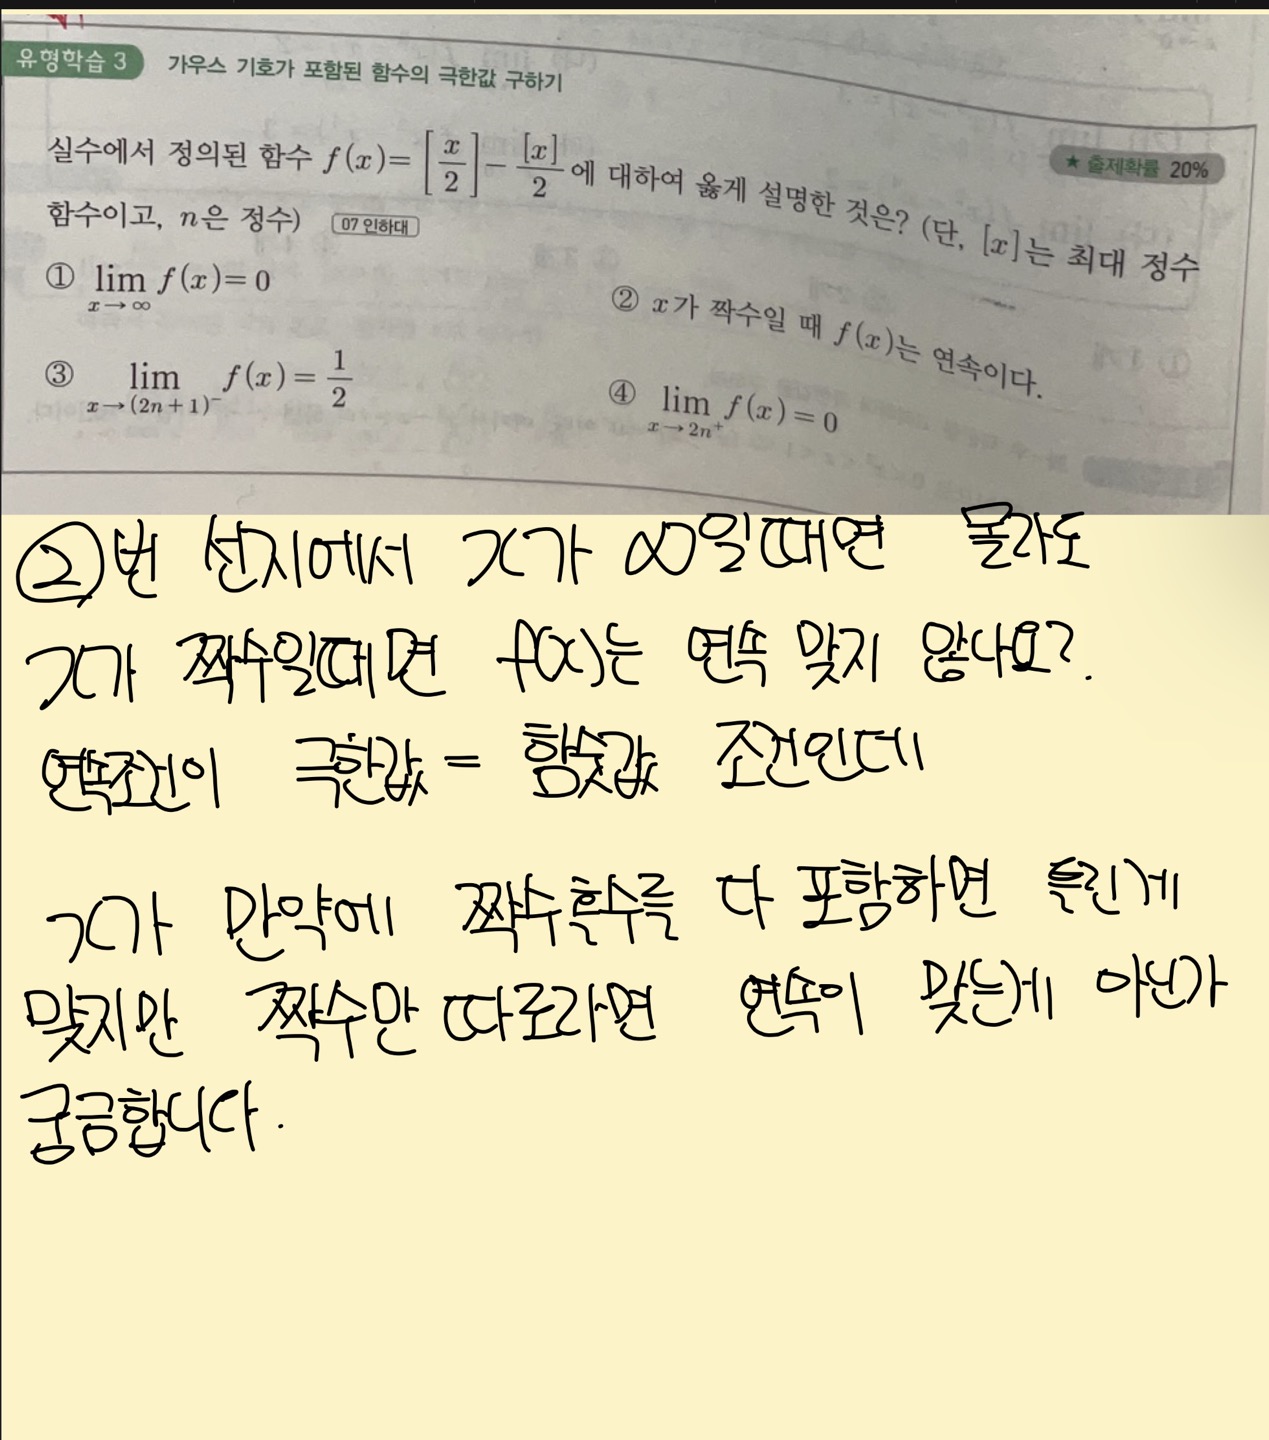 유형학습 3 가우스 기호가 포함된 함수의 극한값 구하기
★ 출제확률 20%
실수에서 정의된 함수 f(x)=[x/2]-[x]/2에 대하여 옳게 설명한 것은? (단, [x]는 최대 정수
함수이고, n은 정수) 07 인하대
① lim x→∞ f(x)=0
② x가 짝수일 때 f(x)는 연속이다.
③ lim x→(2n+1)⁻ f(x)=1/2
④ lim x→2n⁺ f(x)=0
②번 선지에서 x가 ∞일때면 몰라도
x가 짝수일때면 f(x)는 연속 맞지 않나요?
연속조건이 극한값 = 함숫값 조건인데
x가 만약에 짝수홀수를 다 포함하면 틀린게
맞지만 짝수만 따로라면 연속이 맞는게 아닌가
궁금합니다.